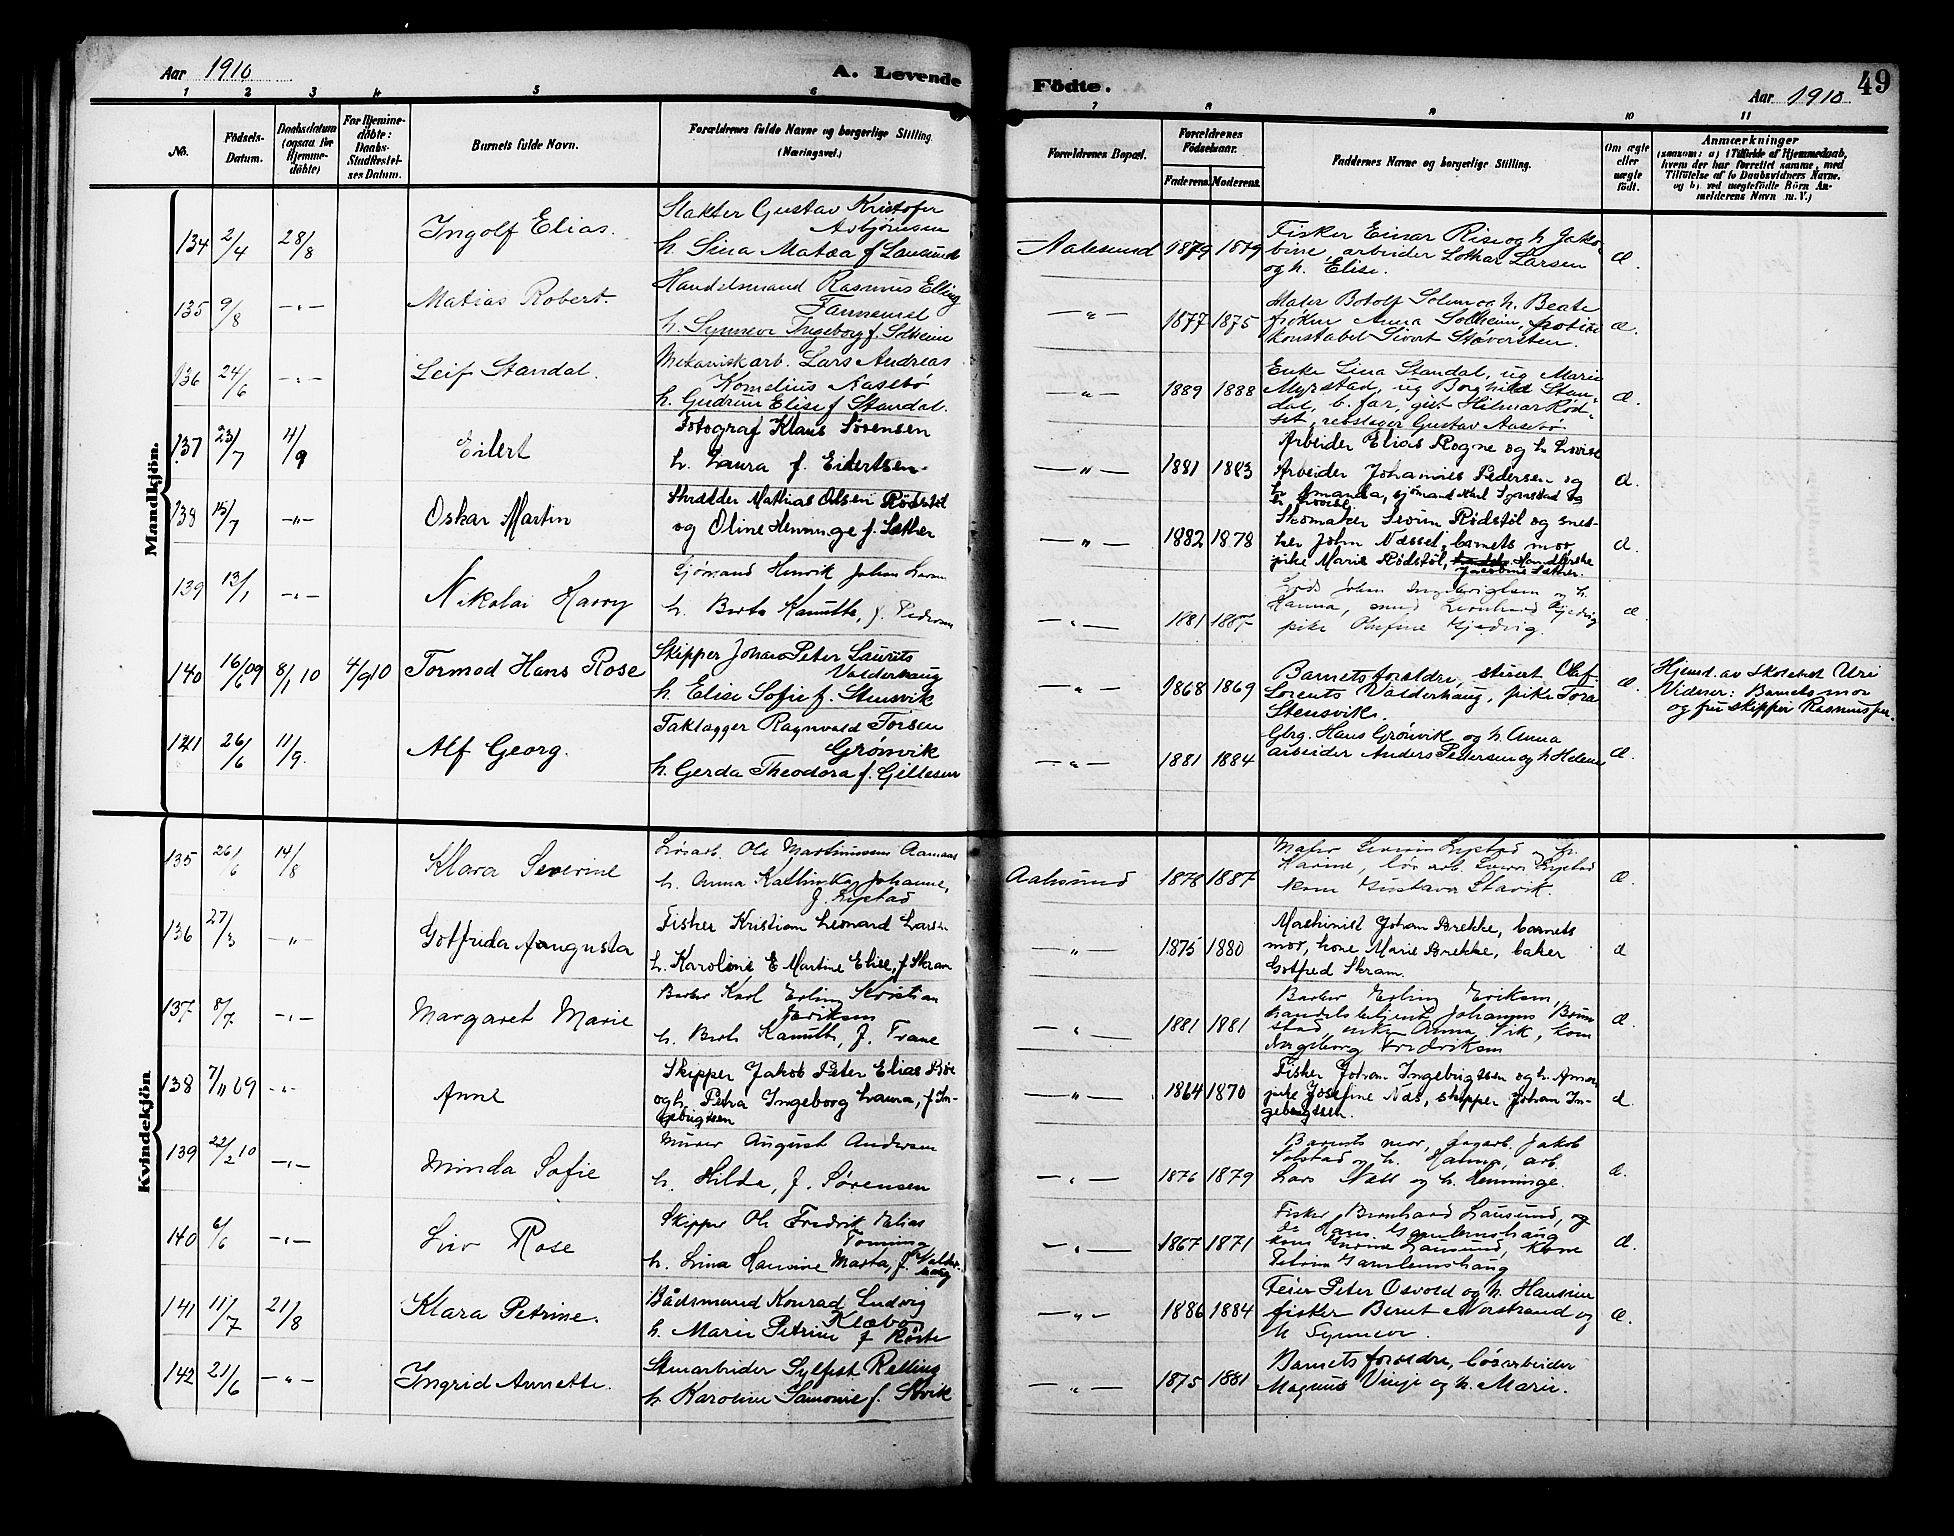 Aar 1910
A. Levende
Fødte.
49
Aar 1910
1 2 3 4 5 6 7 8 9 10 11
No.
Födsels-
Datum.
Daabsdatum
(ogsaa for
Hjemme-
döbte)
For Hjemme-
döbte:
Daabs-
Stadfæstel-
ses Datum.
Barnets fulde Navn.
Forældrenes fulde Navne og borgerlige Stilling
(Næringsvei.)
Forældrenes Bopæl.
Forældrenes
Födselsaar.
Faderens. Moderens.
Faddernes Navne og borgerlige Stilling.
Om ægte
eller
uægte
födt.
Anmærkninger
(saasom: a) i Tilfælde af Hjemmedaab,
hvem der har forrettet samme, med
Tilföielse af to Daabsvidners Navne.
og b) ved uægtefödte Börn An-
melderens Navn m. V.)
Mandkjön.
134 2/4 28/8 Ingolf Elias.
Slakter Gustav Kristofer
Asbjörnsen
h. Sina Matea f Lausund
Aalesund 1879 1879
Fisker Einar Rise og h. Jako-
bine, arbeider Lothar Larsen
og h. Elise.
æ.
135 9/8 -"- Matias Robert.
Handelsmand Rasmus Elling
h. Synneve Ingeborg f. Solheim
-"- 1877 1875
Maler Botolf Solem og h. Beate
frøken Anna Solheim, politi
konstabel Sivert Støversten.
æ.
136 24/6 -"- Leif Standal.
Mekanisk arb. Lars Andreas
Kornelius Aasebö
h. Gudrun Elise f Standal.
-"- 1889 1888
Enke Lina Standal, ug Marie
Myrstad, ug Borghild Stan-
dal, b. far, gift Hilmar Rød-
set, rebslager Gustav Aasebø
æ.
137 23/7 4/9 Eilert
Fotograf Klaus Sørensen
h. Laura f. Eilertsen.
-"- 1881 1883
Arbeider Elias Rogne og h. Lovise
Arbeider Johannes Pedersen og
h. Amanda, sjömand Karl
æ.
138 15/7 -"- Oskar Martin
Skrædder Mathias Olsen Rödstöl
og Oline Henninge f. Sæther
-"- 1882 1878
Skomaker Severin Rødstøl og sned-
ker John Næsset, barnets mor
pike Marie Rødstøl,
æ.
139 13/1 -"- Nikolai Harry
Sjömand Henrik Johan
h. Berta Kanutte, f. Pedersen
-"- 1881
Johan Ingebrigtsen og h.
Hanna,
pike Olufine Gjedvig.
æ
140 16/6 09 8/1 10 4/9 10 Tormod Hans Rose
Skipper Johan Peter Laurits
Valderhaug
h. Elise Sofie f. Stensvik
-"- 1868 1869
Barnets foreldre, stuert Olef
Lorents Valderhaug, pike Tora
Stensvik.
æ.
Hjemd. av Skolebest Uri
Vidner: Barnets mor
og fru skipper
141 26/6 11/9. Alf Georg.
Taklægger Ragnvald Torsen
Grønvik
h. Gerda Theodora f. Gillesen
-"- 1881 1884
Gbrg. Hans Grönvik og h. Anna
arbeider Anders Pedersen og h Helene
æ.
Kvindekjön
135 26/6 14/8 Klara Severine
Løsarb. Ole Martinussen Aamaas
h. Anna Kathinka Johanne,
Aalesund 1878 1887
æ.
136 27/3 -"- Gotfrida Augusta
Fisker Kristian Leonard Larsen
h. Karoline E Martine Elise, f. Skram
-"- 1875 1880
Maskinist Johan Brekke, barnets
mor, kone Marie Brekke, baker
Gotfred Skram.
æ
137 8/7 -"- Margaret Marie
Barber Karl Erling Kristian
Eriksen
h. Berta Kanutte, f. Trane
-"- 1881 1881
Barber Erling Eriksen,
handelsbetjent Johannes Brun-
stad, enke Anna Vik, kone
Ingeborg Fredriksen
æ.
138 7/11 09 -"- Anne
Skipper Jakob Peter Elias Bøe
og h. Petra Ingeborg Laura, f. In-
gebrigtsen
-"- 1864 1870
Fisker Johan Ingebrigtsen og h. Anna
pike Josefine Næs, skipper Johan In-
gebrigtsen.
æ.
139 22/2 10 -"- Minda Sofie
Murer August Andersen
h. Hilda, f. Sørensen
-"- 1876 1879
Barnets mor, fagarb. Jakob
Solstad og h. Hanna, arb.
Lars Nall og h. Henninge.
æ.
140 6/6 -"- Liv Rose
Skipper Ole Fredrik Elias
Tonning
h. Lina Hansine Marta, f. Valder-
haug
-"- 1867 1871
Fisker Bernhard Lausund, og
kone Lausund, kone
Petrine Gamlemshaug
æ.
141 11/7 21/8 Klara Petrine.
Bådsmand Konrad Ludvig
Klæbo
h. Marie Petrine f Röste
-"- 1886 1884
Feier Peter Osvold og h Hansine
fisker Bernt Norstrand og
h Synnove.
æ.
142 21/6 -"- Ingrid Annette.
Stenarbeider Sylfest Relling
h. Karoline Samonie f. Stvik
-"- 1875 1881
Barnets foreldre, løsarbeider
Magnus Vinje og h. Marie.